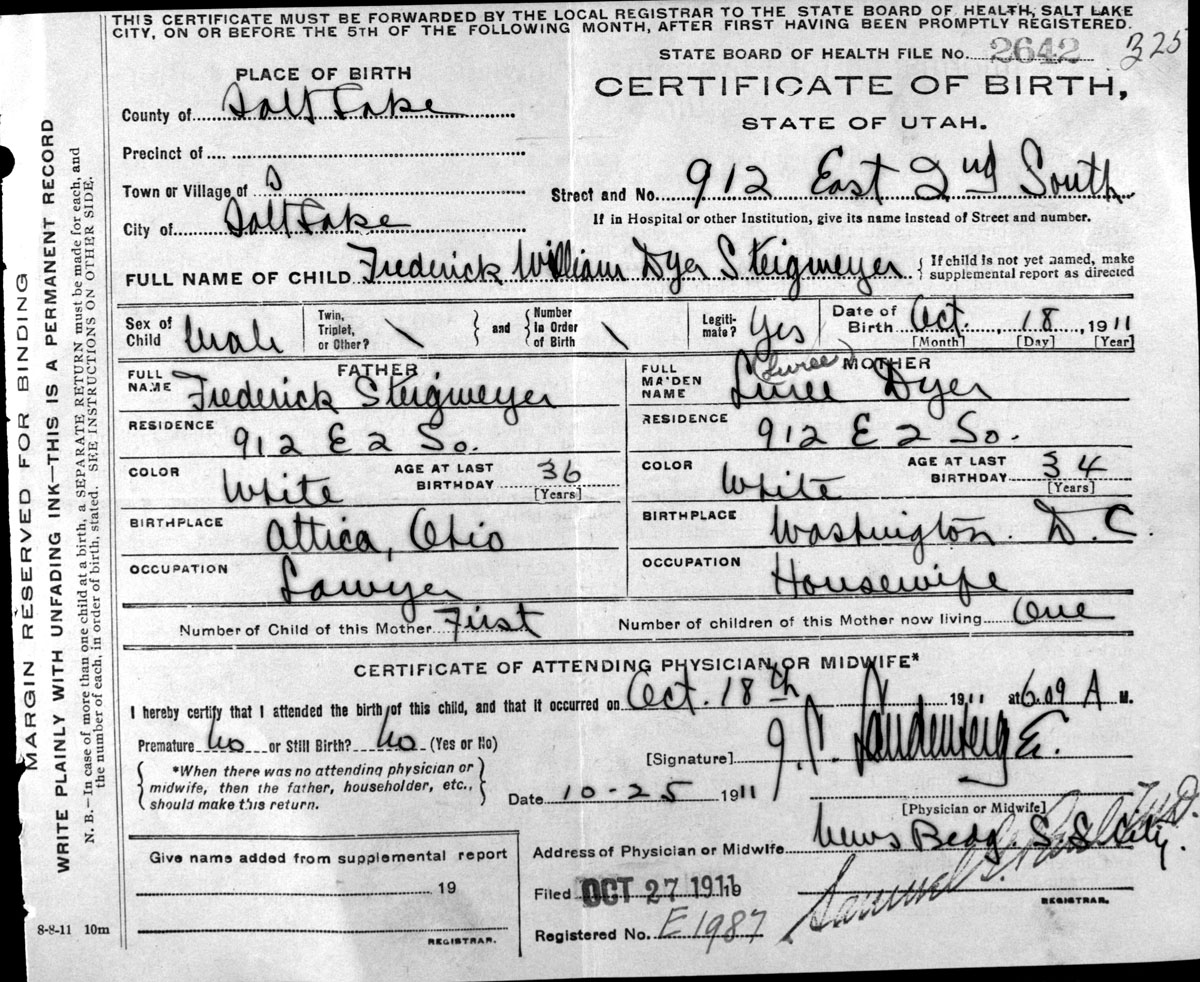 THIS CERTIFICATE MUST BE FORWARDED BY THE LOCAL REGISTRAR TO THE STATE BOARD OF HEALTH, SALT LAKE
CITY, ON OR BEFORE THE 5TH OF THE FOLLOWING MONTH, AFTER FIRST HAVING BEEN PROMPTLY REGISTERED.
STATE BOARD OF HEALTH FILE No. 2642 325
PLACE OF BIRTH
CERTIFICATE OF BIRTH,
STATE OF UTAH.
County of Salt Lake
Precinct of
Town or Village of
Street and No. 912 East 2nd South
City of Salt Lake
If in Hospital or other Institution, give its name instead of Street and number.
FULL NAME OF CHILD Frederick William Dyer Steigmeyer { If child is not yet named, make
supplemental report as directed
Sex of Child Male
Twin, Triplet, or Other? \ } and { Number In Order of Birth \
Legiti-mate? Yes
Date of Birth Oct. , 18 , 1911
[Month] [Day] [Year]
FATHER
FULL NAME Frederick Steigmeyer
RESIDENCE 912 E 2 So.
COLOR White AGE AT LAST BIRTHDAY 36 [Years]
BIRTHPLACE Attica, Ohio
OCCUPATION Lawyer
MOTHER
(Luree)
FULL MAIDEN NAME Luree Dyer
RESIDENCE 912 E 2 So.
COLOR White AGE AT LAST BIRTHDAY 34 [Years]
BIRTHPLACE Washington. D.C.
OCCUPATION Housewife
Number of Child of this Mother First Number of children of this Mother now living One
CERTIFICATE OF ATTENDING PHYSICIAN OR MIDWIFE*
I hereby certify that I attended the birth of this child, and that it occurred on Oct. 18th 1911 at 6.09 A M.
Premature No or Still Birth? No (Yes or No)
[Signature]
*When there was no attending physician or
midwife, then the father, householder, etc.,
should make this return.
Date 10-25 1911
[Physician or Midwife]
Give name added from supplemental report
19
REGISTRAR.
Address of Physician or Midwife News Bldg. S L City.
Filed OCT 27 1911
Samuel G.
REGISTRAR.
Registered No. E1987
8-8-11 10m
MARGIN RESERVED FOR BINDING
WRITE PLAINLY WITH UNFADING INK—THIS IS A PERMANENT RECORD
N. B.—In case of more than one child at a birth, a SEPARATE RETURN must be made for each, and
the number of each, in order of birth, stated. SEE INSTRUCTIONS ON OTHER SIDE.